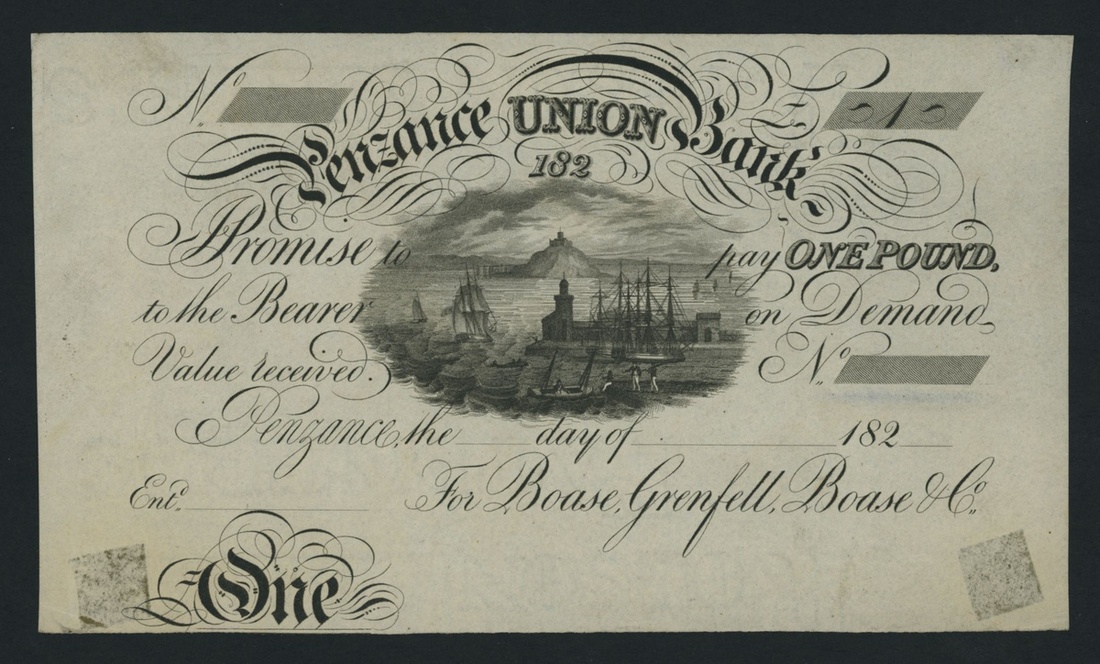 No. £ 1
Penzance UNION Bank
182
I Promise to pay ONE POUND,
to the Bearer on Demand
Value received. No.
Penzance, the day of 182
Entd. For Boase, Grenfell, Boase & Co.
One